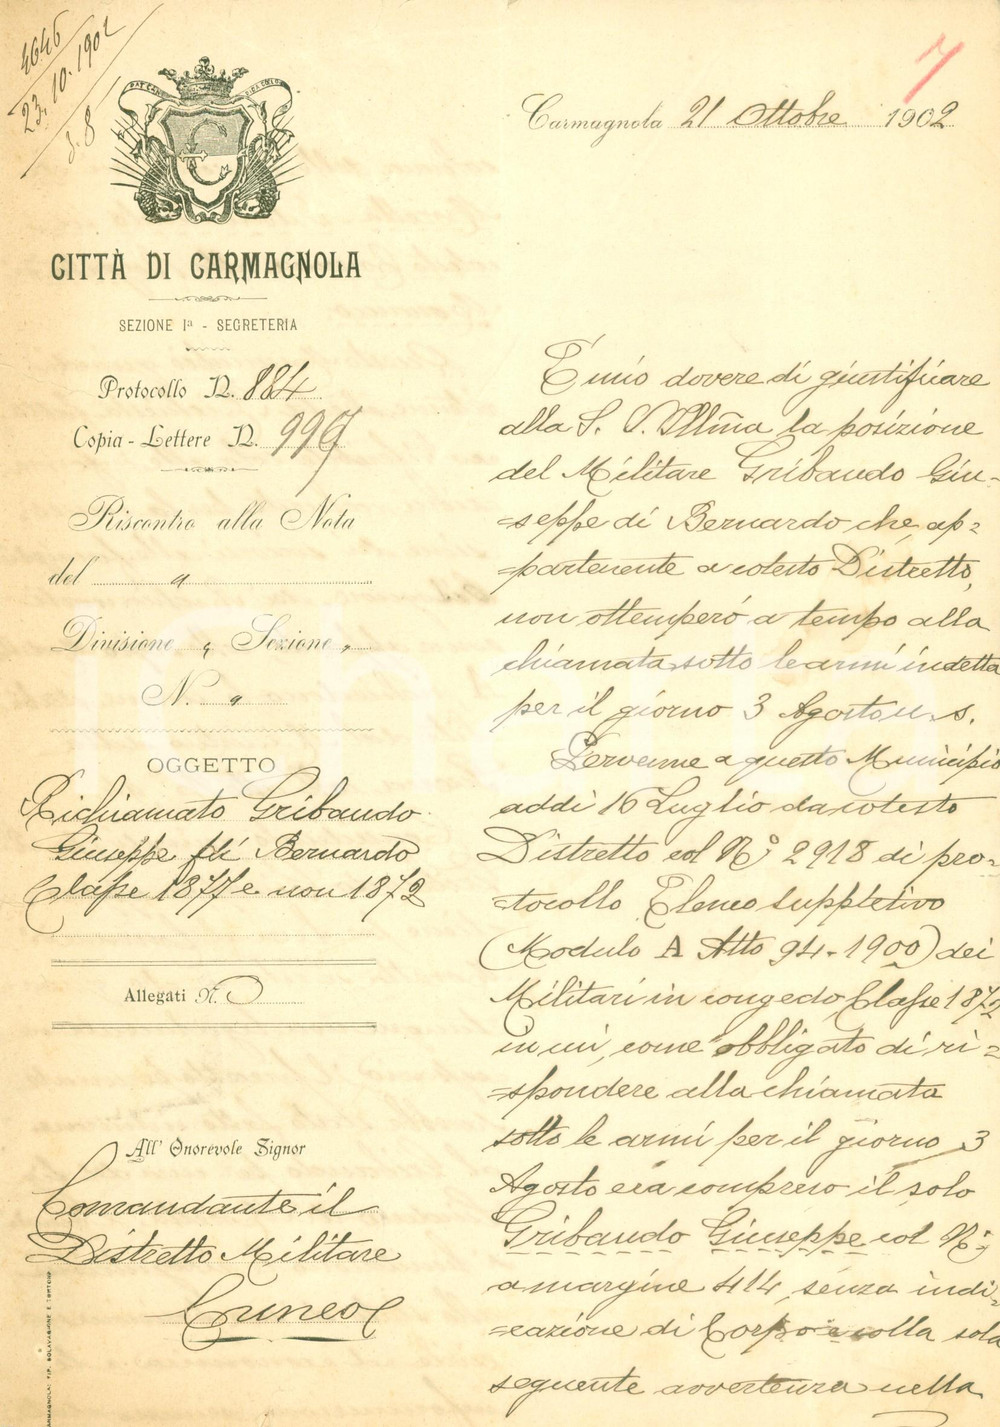 4646
23.10.1902
S. 8
Carmagnola 21 Ottobre 1902
7
CITTÀ DI CARMAGNOLA
SEZIONE Iª - SEGRETERIA
Protocollo N. 884
Copia-Lettere N. 997
Riscontro alla Nota
del
Divisione Sezione
N.
OGGETTO
Richiamato Gribaudo
Giuseppe di Bernardo
Classe 1877 e non 1872
Allegati N. 0
All' Onorevole Signor
Comandante il
Distretto Militare
Cuneo
È mio dovere di giustificare
alla S. V. Illma la posizione
del Militare Gribaudo Giu-
=seppe di Bernardo che, ap=
=partenente a cotesto Distretto,
non ottemperò a tempo alla
chiamata sotto le armi indetta
per il giorno 3 Agosto u. s.
Pervenne a questo Municipio
addì 16 Luglio da cotesto
Distretto col N.° 2918 di pro=
=tocollo Elenco suppletivo
(Modulo A Atto 94-1900) dei
Militari in congedo, Classe 1872
in cui, come obbligato di ri=
=spondere alla chiamata
sotto le armi per il giorno 3
Agosto era compreso il solo
Gribaudo Giuseppe col N.°
a margine 414, senza indi=
=cazione di Corpo e colla sola
seguente avvertenza nella